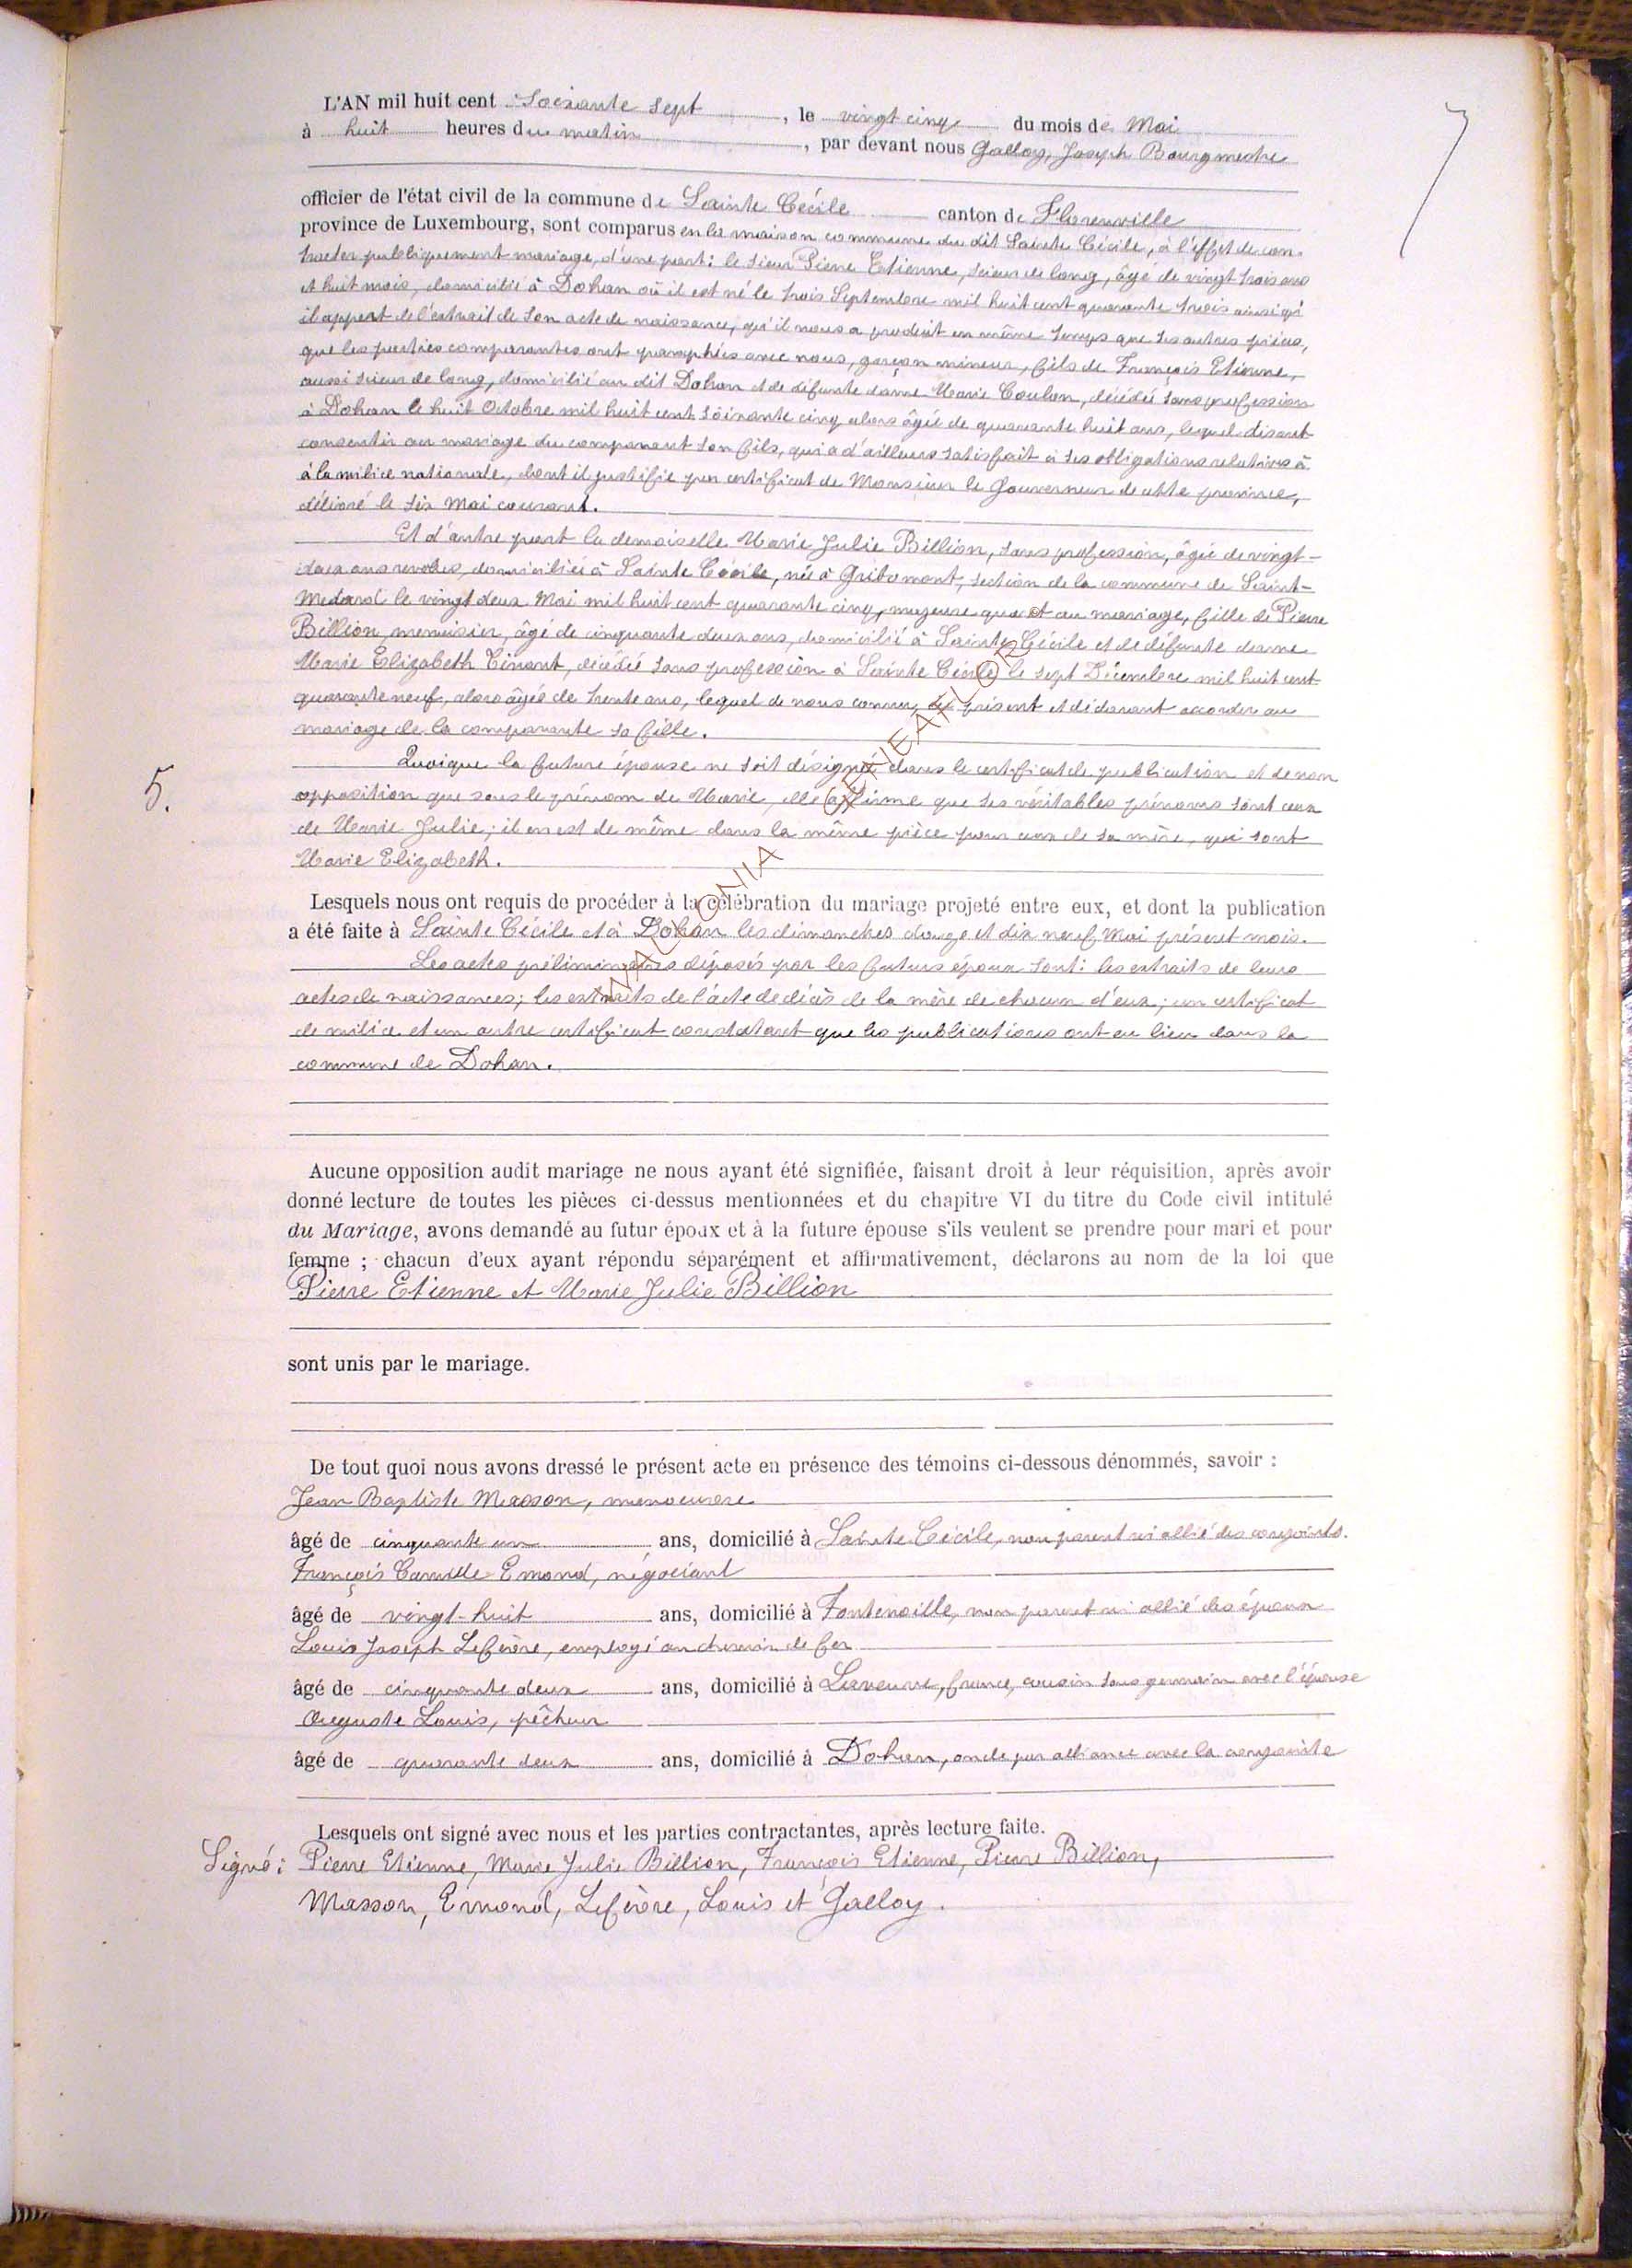 7
L'AN mil huit cent soixante sept, le vingt cinq du mois de Mai
à huit heures du matin, par devant nous Galloy, Joseph Bourgmestre
officier de l'état civil de la commune de Sainte Cécile canton de Florenville
province de Luxembourg, sont comparus en la maison commune du dit Sainte Cécile, à l'effet de con-
tracter publiquement mariage, d'une part: le sieur Pierre Etienne, scieur de long, âgé de vingt trois ans
et huit mois, domicilié à Dohan où il est né le trois Septembre mil huit cent quarante trois ainsi qu'
il appert de l'extrait de son acte de naissance, qu'il nous a produit en même temps que ses autres pièces,
que les parties comparantes ont paraphées avec nous, garçon mineur, fils de François Etienne,
aussi scieur de long, domicilié au dit Dohan et de défunte dame Marie Coulon, décédée sans profession
à Dohan le huit Octobre mil huit cent soixante cinq alors âgée de quarante huit ans, lequel disant
consentir au mariage du comparant son fils, qui a d'ailleurs satisfait à ses obligations relatives à
à la milice nationale, dont il justifie par certificat de Monsieur le Gouverneur de cette province,
délivré le six Mai courant.
Et d'autre part la demoiselle Marie Julie Billion, sans profession, âgée de vingt-
deux ans révolus, domiciliée à Sainte Cécile, née à Gribomont, section de la commune de Saint-
Medard le vingt deux Mai mil huit cent quarante cinq, majeure quant au mariage, fille de Pierre
Billion, menuisier, âgé de cinquante deux ans, domicilié à Sainte Cécile et de défunte dame
Marie Elizabeth Tinant, décédée sans profession à Sainte Cécile le sept Décembre mil huit cent
quarante neuf, alors âgée de trente ans, lequel de nous connu, ici présent et déclarant accorder au
mariage de la comparante sa fille.
Quoique la future épouse ne soit désignée dans le certificat de publication et de non
opposition que sous le prénom de Marie, elle affirme que ses véritables prénoms sont ceux
5.
de Marie Julie; il en est de même dans la même pièce pour ceux de sa mère, qui sont
Marie Elizabeth.
WALLONIA GENEAFLOR
Lesquels nous ont requis de procéder à la célébration du mariage projeté entre eux, et dont la publication
a été faite à Sainte Cécile et à Dohan les dimanches douze et dix neuf Mai présent mois.
Les actes préliminaires déposés par les futurs époux sont: les extraits de leurs
actes de naissances; les extraits de l'acte de décès de la mère de chacun d'eux; un certificat
de milice et un autre certificat constatant que les publications ont eu lieu dans la
commune de Dohan.
Aucune opposition audit mariage ne nous ayant été signifiée, faisant droit à leur réquisition, après avoir
donné lecture de toutes les pièces ci-dessus mentionnées et du chapitre VI du titre du Code civil intitulé
du Mariage, avons demandé au futur époux et à la future épouse s'ils veulent se prendre pour mari et pour
femme ; chacun d'eux ayant répondu séparément et affirmativement, déclarons au nom de la loi que
Pierre Etienne et Marie Julie Billion
sont unis par le mariage.
De tout quoi nous avons dressé le présent acte en présence des témoins ci-dessous dénommés, savoir :
Jean Baptiste Masson, manoeuvre
âgé de cinquante un ans, domicilié à Sainte Cécile, non parent ni allié des conjoints.
François Camille Emond, négociant
âgé de vingt-huit ans, domicilié à Fontenoille, non parent ni allié des époux
Louis Joseph Lefèvre, employé au chemin de fer
âgé de cinquante deux ans, domicilié à france, cousin sous germain avec l'épouse
Auguste Louis, pêcheur
âgé de quarante deux ans, domicilié à Dohan, oncle par alliance avec la conjointe
Lesquels ont signé avec nous et les parties contractantes, après lecture faite.
Signé: Pierre Etienne, Marie Julie Billion, François Etienne, Pierre Billion,
Masson, Emond, Lefèvre, Louis et Galloy.